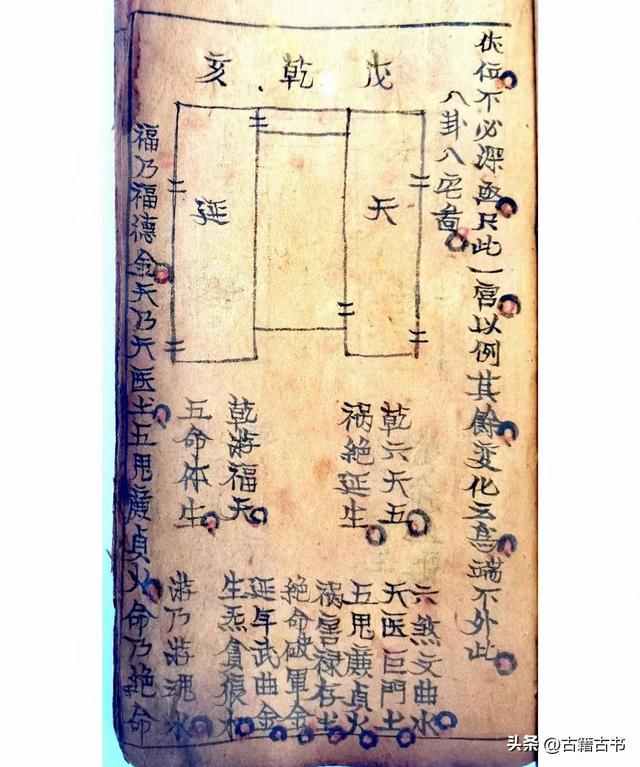 伏位不必深画只此一宫以例其餘变化云為端不外此
八卦八宅畜
戊乾亥
天
延
乾六天五
祸絶延生
乾游福天
五命体生
六煞文曲水
天医巨門土
五鬼廣貞火
祸害禄存土
絶命破軍金
延年武曲金
生炁貪狼木
游乃游魂水
福乃福德金天乃天医土五鬼廣貞火命乃絶命
头条@古籍古书